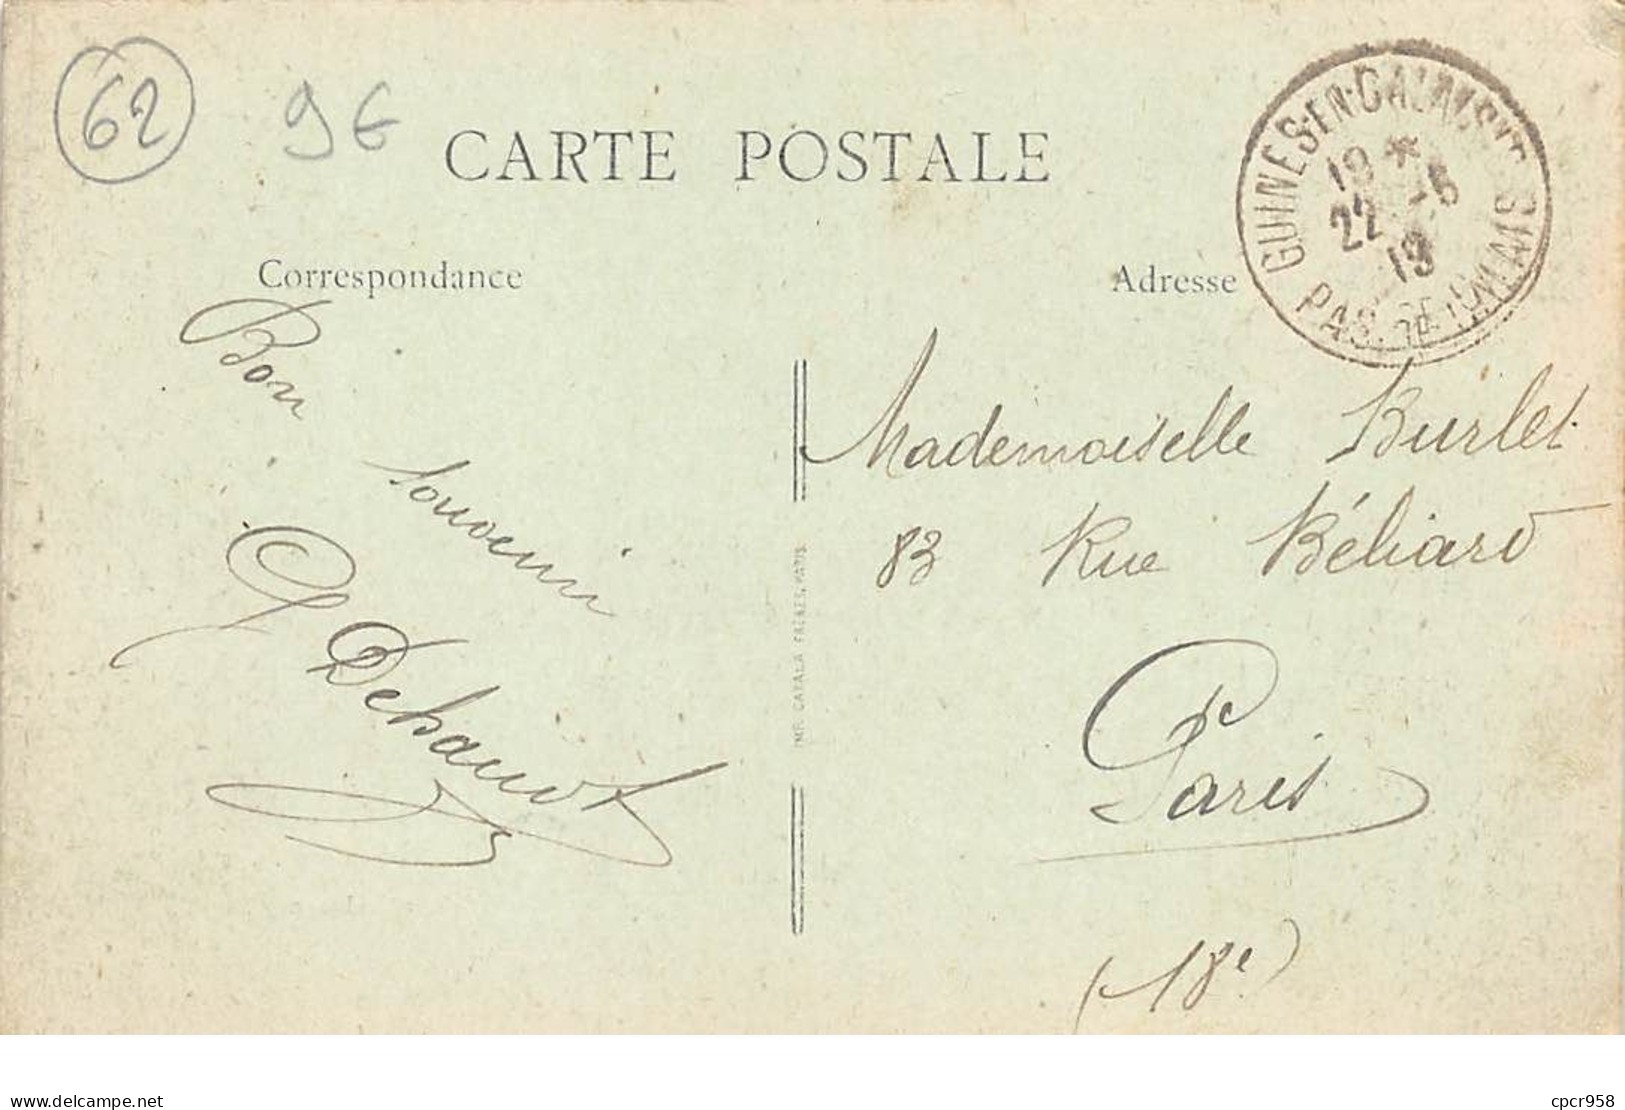 62
9€
CARTE POSTALE
GUINES-EN-CALAISIS
PAS-DE-CALAIS
19 *
22 -6
19
Correspondance
Adresse
Bon
Souvenir
Mademoiselle Burlet
83 Rue Béliard
Paris
(18e)
IMP. CATALA FRERES, PARIS
www.delcampe.net
cpcr958